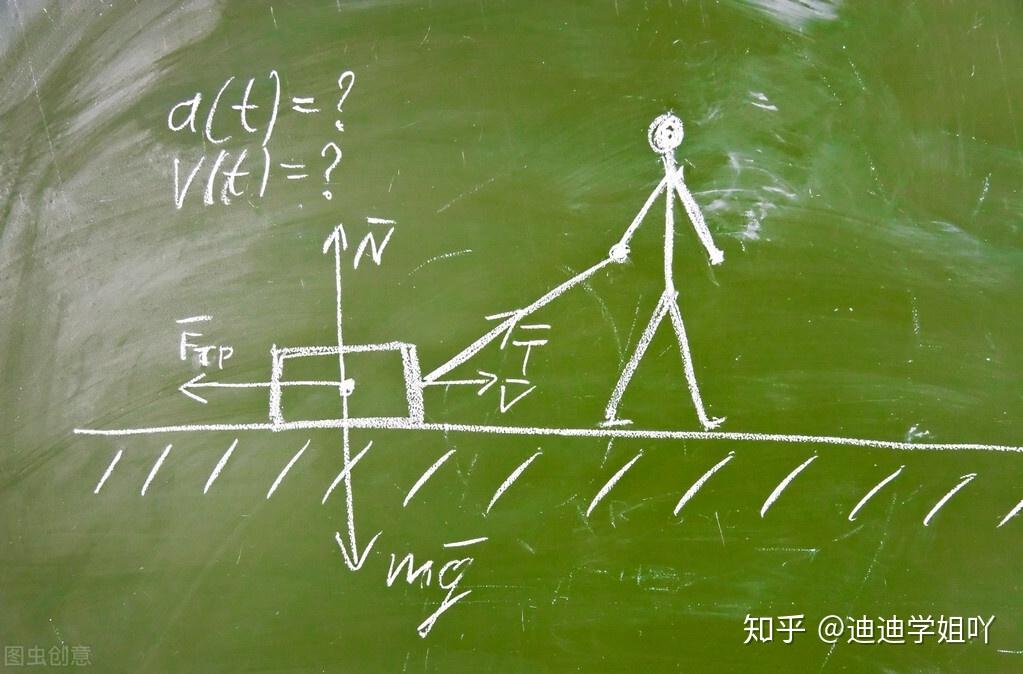 a(t)=?
V(t)=?
N̅
F̅тр
T̅
V̅
mg̅
知乎 @迪迪学姐吖
图虫创意